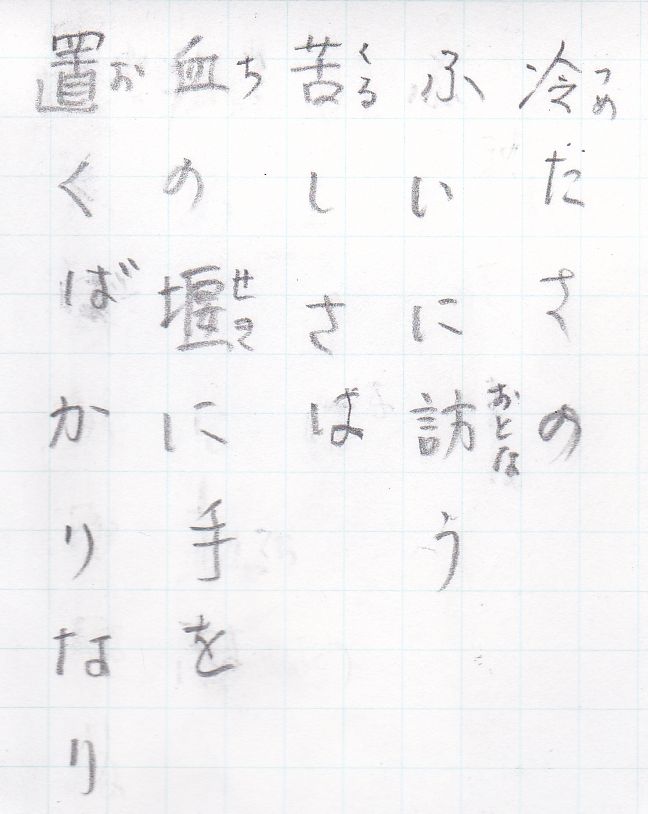 冷たさの
つめ
ふいに訪う
おとな
苦しさは
くる
血の堰に手を
ち せき
置くばかりなり
お